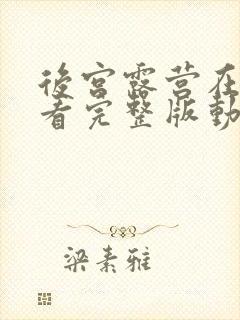 後宫露营在
看完整版動
梁素雅